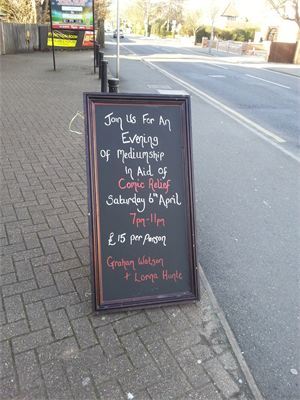 Join Us For An
Evening
Of Mediumship
In Aid of
Comic Relief
Saturday 6th April
7pm-11pm
£15 per person
Graham Watson
+ Lorna Hunte